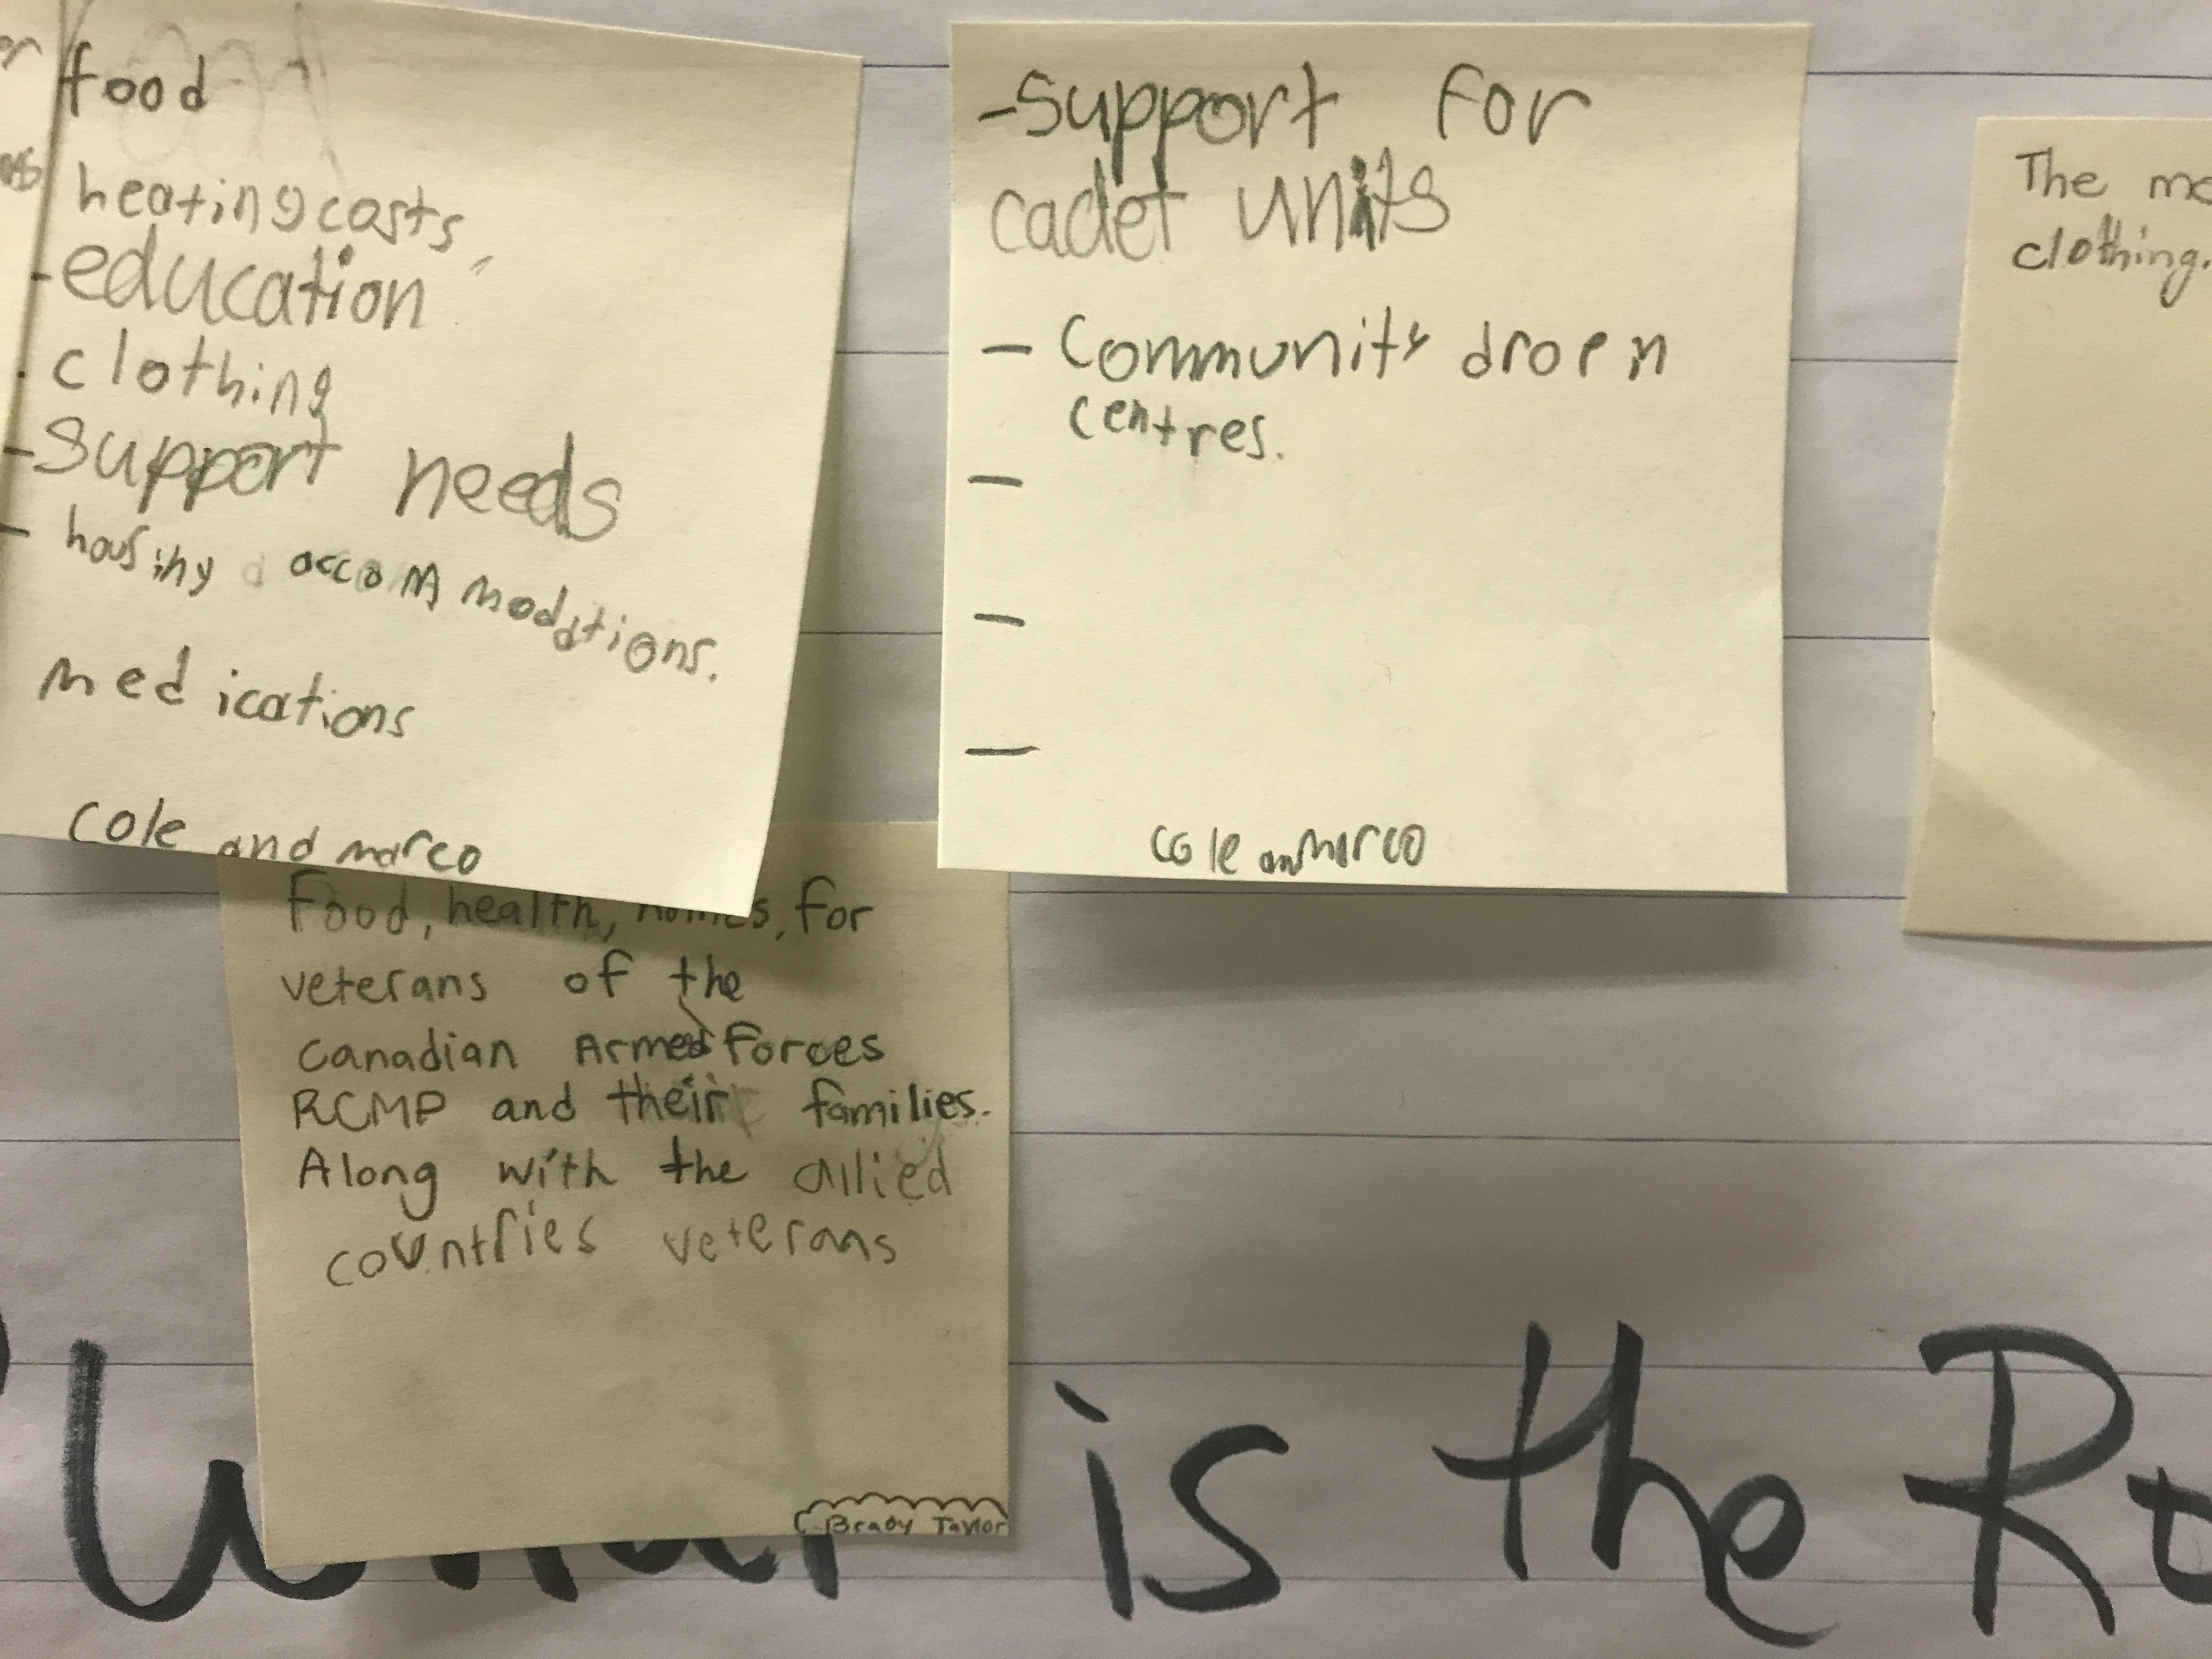 food
heating costs,
- education
- clothing
- Support needs
- housing accommodations.
medications
Cole and marco
- Support for
cadet units
- Community drop in
centres.
-
-
-
cole and marco
The
clothing.
Food, health, homes, for
veterans of the
Canadian Armed Forces
RCMP and their families.
Along with the allied
countries veterans
Brady Taylor
What is the